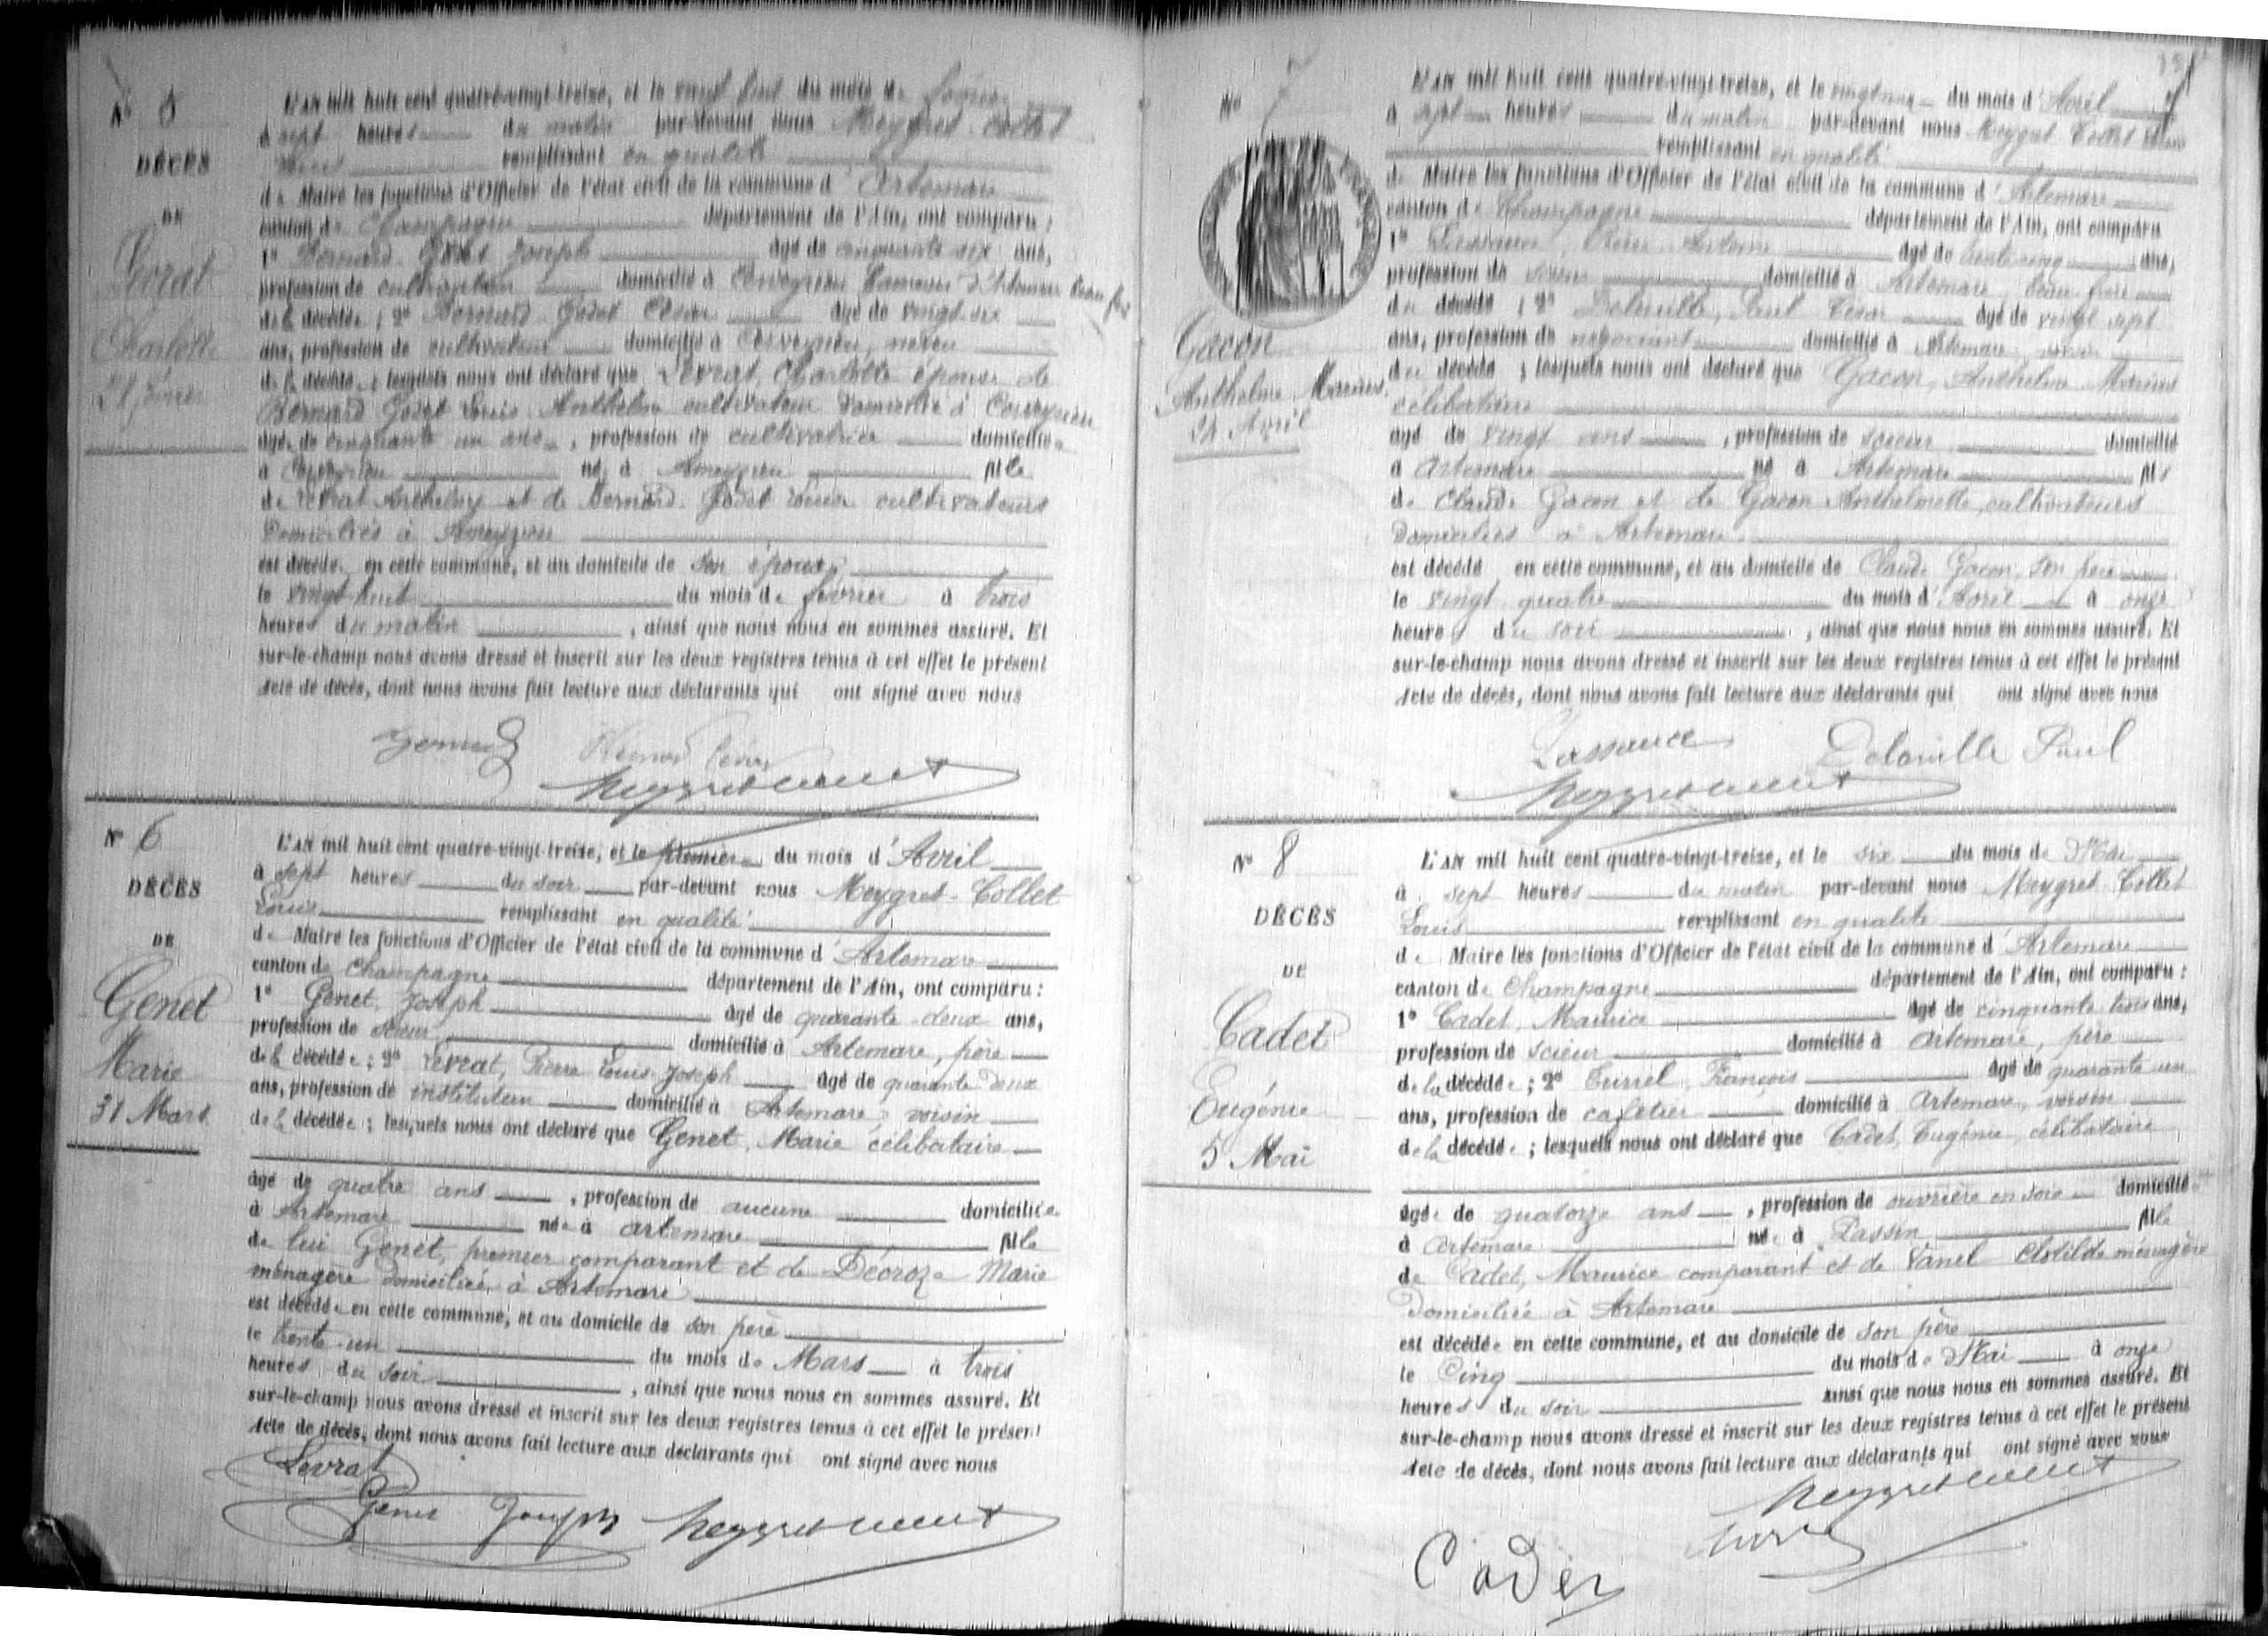 N° 5
DÉCÈS
DE
Levrat
Charlotte
28 février
L'AN mil huit cent quatre-vingt-treize, et le vingt huit du mois de février
à sept heures du matin par-devant nous Meygret-Collet
Louis remplissant en qualité
de Maire les fonctions d'Officier de l'état civil de la commune d'Artemare
canton de Champagne département de l'Ain, ont comparu :
1° Bernard Godet Joseph âgé de cinquante-six ans,
profession de cultivateur domicilié à Cerveyrieu hameau d'Artemare beau frère
de la décédée ; 2° Bernard Godet César âgé de vingt-six
ans, profession de cultivateur domicilié à Cerveyrieu, neveu
de la décédée ; lesquels nous ont déclaré que Levrat, Charlotte épouse de
Bernard Godet Louis Anthelme cultivateur domicilié à Cerveyrieu
âgée de cinquante un ans, profession de cultivatrice domiciliée
à Cerveyrieu née à Ameyzieu fille
de Levrat Anthelme et de Bernard Godet cultivateurs
domiciliés à Ameyzieu
est décédée en cette commune, et au domicile de son époux
le vingt-huit du mois de février à trois
heures du matin, ainsi que nous nous en sommes assuré. Et
sur-le-champ nous avons dressé et inscrit sur les deux registres tenus à cet effet le présent
Acte de décès, dont nous avons fait lecture aux déclarants qui ont signé avec nous
N° 6
DÉCÈS
DE
Genet
Marie
31 Mars
L'AN mil huit cent quatre-vingt-treize, et le premier du mois d'Avril
à sept heures du soir par-devant nous Meygret-Collet
Louis remplissant en qualité
de Maire les fonctions d'Officier de l'état civil de la commune d'Artemare
canton de Champagne département de l'Ain, ont comparu :
1° Genet, Joseph âgé de quarante-deux ans,
profession de scieur domicilié à Artemare, père
de la décédée ; 2° Levrat, Pierre Louis Joseph âgé de quarante deux
ans, profession de instituteur domicilié à Artemare, voisin
de la décédée ; lesquels nous ont déclaré que Genet, Marie célibataire
âgé de quatre ans, profession de aucune domiciliée
à Artemare née à Artemare fille
de lui Genet, premier comparant et de Déroze Marie
ménagère domiciliée à Artemare
est décédée en cette commune, et au domicile de son père
le trente-un du mois de Mars à trois
heures du soir, ainsi que nous nous en sommes assuré. Et
sur-le-champ nous avons dressé et inscrit sur les deux registres tenus à cet effet le présent
Acte de décès, dont nous avons fait lecture aux déclarants qui ont signé avec nous
Levrat
Genet Joseph
N° 7
Gacon
Anthelme Marius
24 Avril
L'AN mil huit cent quatre-vingt-treize, et le vingt cinq du mois d'Avril
à sept heures du matin par-devant nous Meygret Collet Louis
remplissant en qualité
de Maire les fonctions d'Officier de l'état civil de la commune d'Artemare
canton de Champagne département de l'Ain, ont comparu
1° Lassance, Antoine âgé de trente cinq ans,
profession de scieur domicilié à Artemare, beau-frère
du décédé ; 2° Delouille, Paul César âgé de vingt sept
ans, profession de négociant domicilié à Artemare, voisin
du décédé ; lesquels nous ont déclaré que Gacon, Anthelme Marius
célibataire
âgé de vingt ans, profession de scieur domicilié
à Artemare né à Artemare fils
de Claude Gacon et de Gacon Anthelmette, cultivateurs
domiciliés à Artemare
est décédé en cette commune, et au domicile de Claude Gacon, son père
le vingt quatre du mois d'Avril à onze
heures du soir, ainsi que nous nous en sommes assuré. Et
sur-le-champ nous avons dressé et inscrit sur les deux registres tenus à cet effet le présent
Acte de décès, dont nous avons fait lecture aux déclarants qui ont signé avec nous
Lassance Delouille Paul
N° 8
DÉCÈS
DE
Cadet
Eugénie
5 Mai
L'AN mil huit cent quatre-vingt-treize, et le six du mois de Mai
à sept heures du matin par-devant nous Meygret Collet
Louis remplissant en qualité
de Maire les fonctions d'Officier de l'état civil de la commune d'Artemare
canton de Champagne département de l'Ain, ont comparu :
1° Cadet, Maurice âgé de cinquante trois ans,
profession de scieur domicilié à Artemare, père
de la décédée ; 2° Turrel, François âgé de quarante un
ans, profession de cafetier domicilié à Artemare, voisin
de la décédée ; lesquels nous ont déclaré que Cadet, Eugénie, célibataire
âgée de quatorze ans, profession de ouvrière en soie domiciliée
à Artemare née à Passin fille
de Cadet, Maurice comparant et de Vanel Clotilde ménagère
domiciliée à Artemare
est décédée en cette commune, et au domicile de son père
le Cinq du mois de Mai à onze
heures du soir ainsi que nous nous en sommes assuré. Et
sur-le-champ nous avons dressé et inscrit sur les deux registres tenus à cet effet le présent
Acte de décès, dont nous avons fait lecture aux déclarants qui ont signé avec nous
Cadet